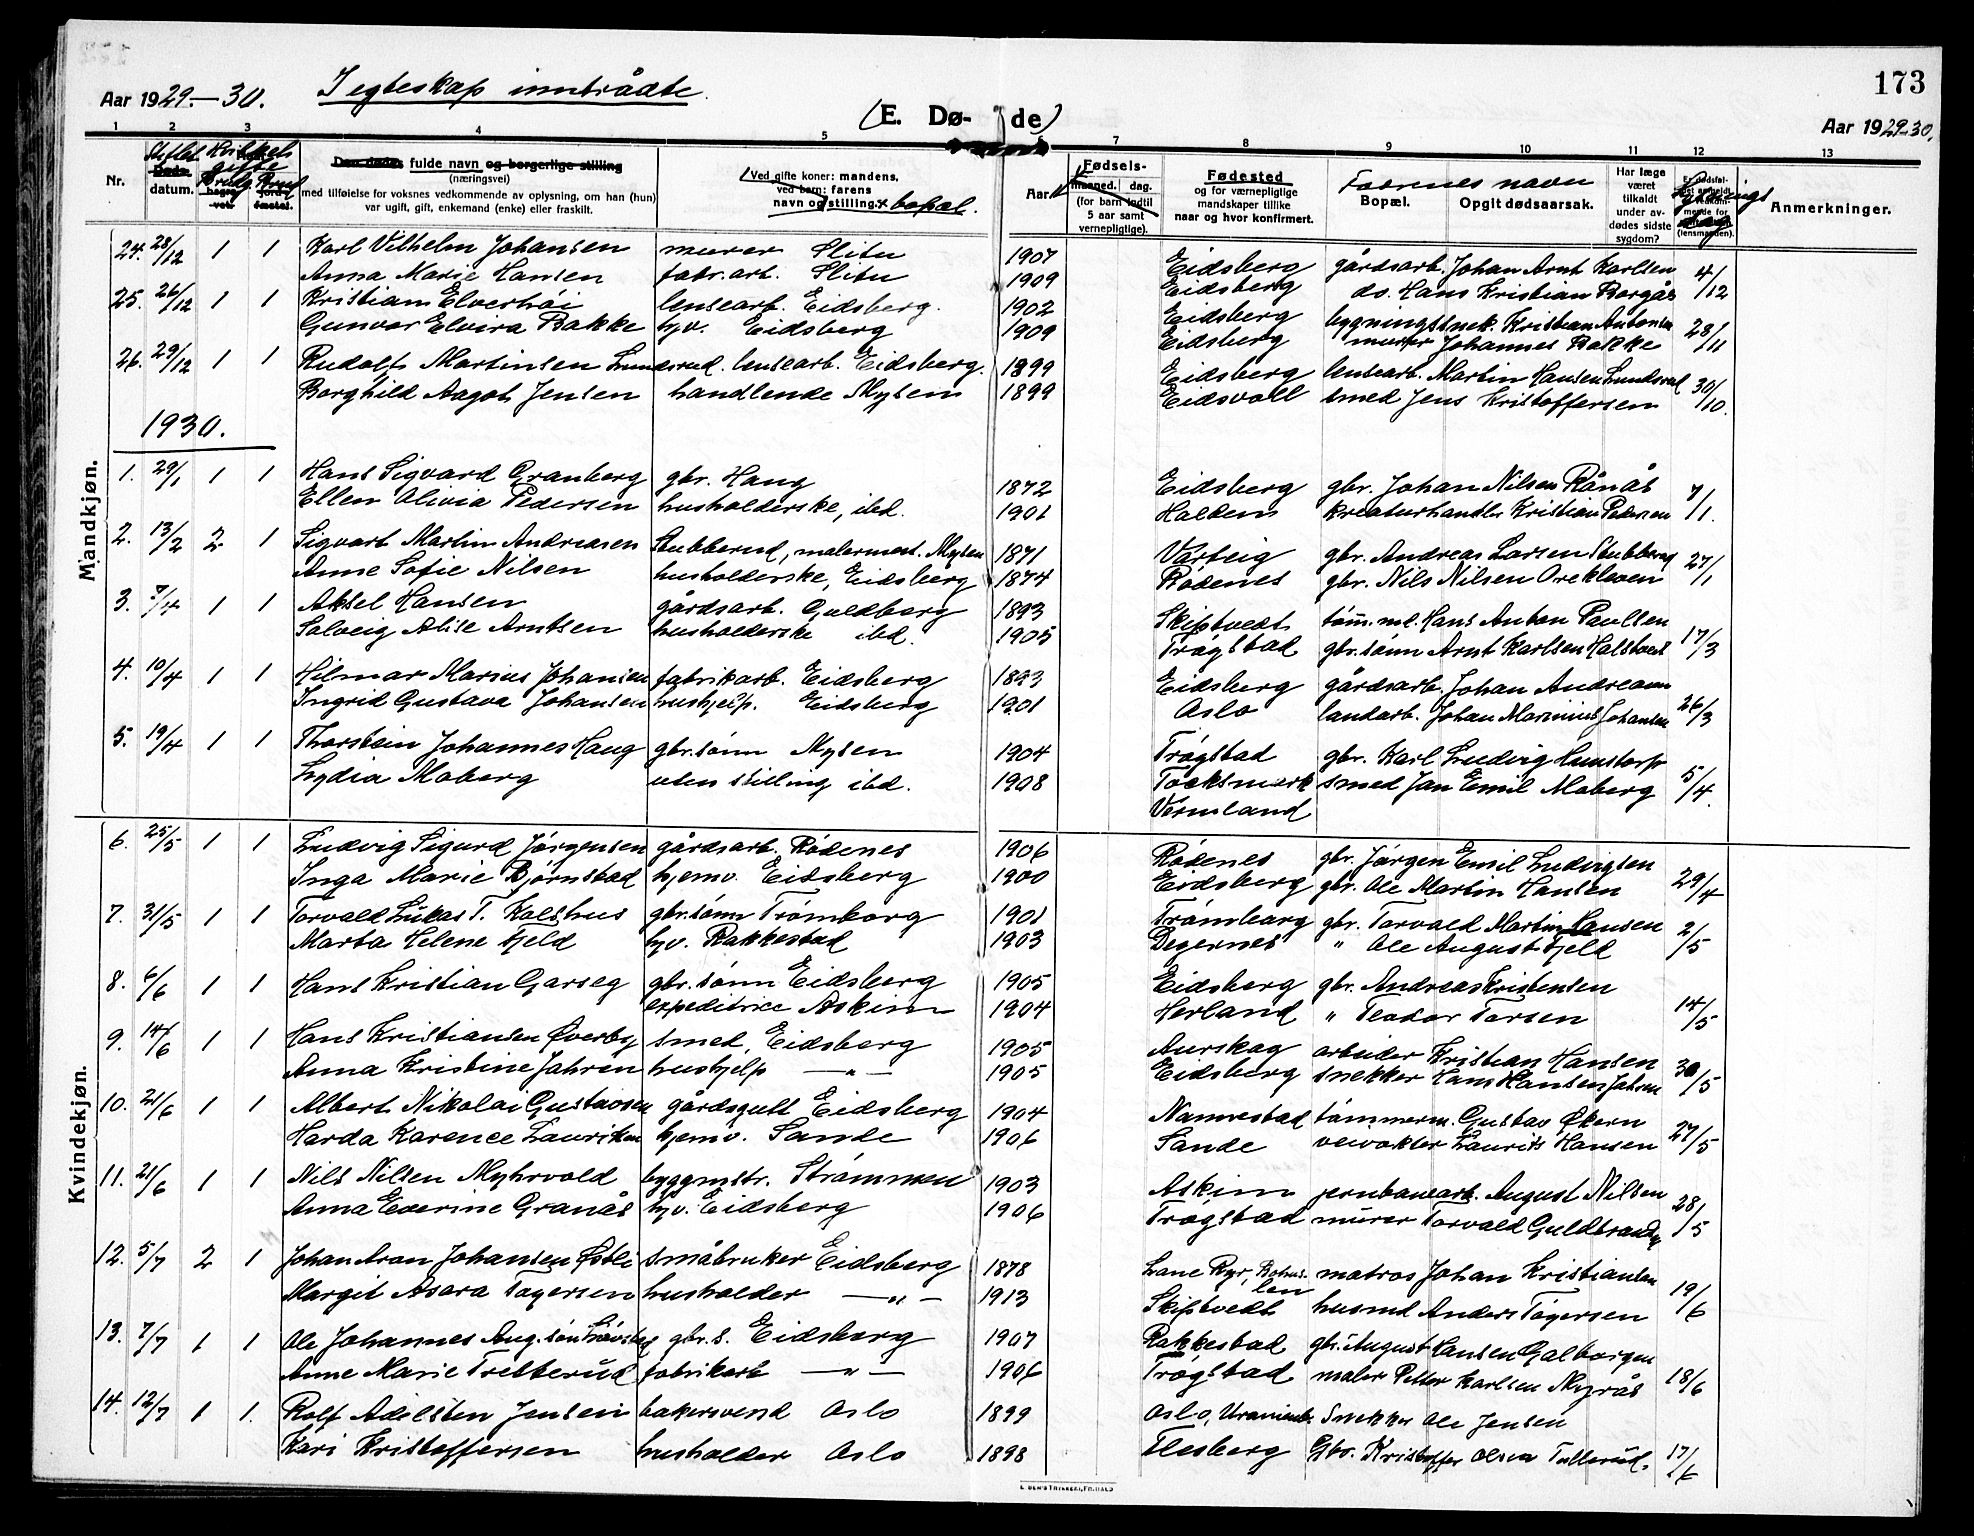 173
Aar 1929.-30. I egteskap inntrådte. (E. Dø- de) Aar 1929-30.
1 2 3 4 5 6 7 8 9 10 11 12 13
Nr. Stiftet datum. Brudg. Brud
Den dødes fulde navn og borgerlige stilling
(næringsvei)
med tilføielse for voksnes vedkommende av oplysning, om han (hun)
var ugift, gift, enkemand (enke) eller fraskilt.
Ved gifte koner: mandens,
ved barn: farens
navn og stilling. x bopæl.
Aar.
Fødsels-
maaned. dag.
(for barn indtil
5 aar samt
vernepligtige).
Fødested
og for værnepligtige
mandskaper tillike
naar og hvor konfirmert.
Fædrenes navn
Bopæl. Opgit dødsaarsak.
Har læge
været
tilkaldt
under av-
dødes sidste
sygdom?
Lysnings dag
(lensmanden).
Anmerkninger.
Mandkjøn.
24. 28/12 1 1 Karl Vilhelm Johansen murer Slitu 1907 Eidsberg gårdsarb. Johan Arnt Karlsen 4/12
Anna Marie Hansen fabr.arb. Slitu 1909 Eidsberg do. Hans Kristian Borgås
25. 26/12 1 1 Kristian Elverhøi lensearb. Eidsberg. 1902 Eidsberg bygningssnek. Kristian Antonsen 28/11
Gunvor Elvira Bakke hjv. Eidsberg 1909 Eidsberg murer Johannes Bakke
26. 29/12 1 1 Rudolf Martinsen Lundsrud. lensearb. Eidsberg. 1899 Eidsberg lensearb. Martin Hansen Lundsrud 30/10.
Borghild Aagot Jensen handlende Mysen 1899 Eidsvoll smed Jens Kristoffersen
1930.
1. 29/1 1 1 Hans Sigvard Granberg gbr. Haug 1872 Eidsberg gbr. Johan Nilsen Rånås 7/1.
Ellen Olivia Pedersen husholderske, ibd. 1901 Halden kreaturhandler Kristian Pedersen
2. 13/2 2 1 Sigvart Martin Andreasen Stubberud, malermest. Mysen 1871 Varteig gbr. Andreas Larsen Stubberud 27/1
Anne Sofie Nilsen husholderske, Eidsberg 1874 Rødenes gbr. Nils Nilsen Orekleven
3. 7/4 1 1 Aksel Hansen gårdsarb. Guldberg 1893 Skiptvedt tøm.ml. Hans Anton Paulsen 17/3
Solveig Alise Arntsen husholderske ibd. 1905 Trøgstad gbr.sønn Arnt Karlsen Halstvedt
4. 10/4 1 1 Hilmar Marius Johansen fabrikarb. Eidsberg 1893 Eidsberg gårdsarb. Johan Andreasen 26/3
Ingrid Gustava Johansen hushjelp. Eidsberg 1901 Oslo landarb. Johan Marinius Johansen
5. 19/4 1 1 Thorstein Johannes Haug gbr.sønn Mysen 1904 Trøgstad gbr. Karl Ludvig Hunstorp 5/4.
Lydia Moberg uten stilling ibd. 1908 Tocksmark smed Jan Emil Moberg
Vermland
Kvindekjøn.
6. 25/5 1 1 Ludvig Sigurd Jørgensen gårdsarb. Rødenes 1906 Rødenes gbr. Jørgen Emil Ludvigsen 29/4
Inga Marie Bjørnstad hjemv. Eidsberg 1900 Eidsberg gbr. Ole Martin Hansen
7. 31/5 1 1 Torvald Lukas T. Kolshus gbr.sønn Trømborg 1901 Trømborg gbr. Torvald Martin Hansen 2/5
Marta Helene Fjeld hjv. Rakkestad 1903 Degernes " Ole August Fjeld
8. 6/6 1 1 Hans Kristian Garseg gbr.sønn Eidsberg 1905 Eidsberg gbr. Andreas Kristensen 14/5
expeditrice Askim 1904 Herland " Teodor Torsen
9. 14/6 1 1 Hans Kristiansen Øverby smed, Eidsberg 1905 Aurskog arbeider Kristian Hansen 30/5
Anna Kristine Jahren hushjelp —"— 1905 Eidsberg snekker Hans Hansen Jahren
10. 21/6 1 1 Albert Nikolai Gustavsen gårdsgutt Eidsberg 1904 Nannestad tømmerm. Gustav Økern 27/5
Harda Karence Lauritsen hjemv. Sande 1906 Sande veivokter Laurits Hansen
11. 21/6 1 1 Nils Nilsen Myhrvold byggmstr. Strømmen 1903 Askim jernbanearb. August Nilsen 28/5
Anna Everine Granås hjv. Eidsberg 1906 Trøgstad murer Torvald Guldbrandsen
12. 5/7 2 1 Johan Aron Johansen Østli småbruker Eidsberg 1878 Lane Ryr, Bohuslen matros Johan Kristiansen 19/6
Margit Asora Tøgersen husholder —"— 1913 Skiptvedt husmd Anders Tøgersen
13. 7/7 1 1 Ole Johannes Aug.søn Løvstad gbr.s. Eidsberg 1907 Rakkestad gbr. August Hansen Galborgen 18/6
Anne Marie Tretterud fabrikarb —"— 1906 Trøgstad maler Petter Karlsen Myrås
14. 12/7 1 1. Rolf Adelsten Jensen bakersvend Oslo 1899 Oslo, Uranienb. Snekker Ole Jensen 17/6
Kari Kristoffersen husholder Oslo 1898 Flesberg Gbr. Kristoffer Olsen Tullerud.